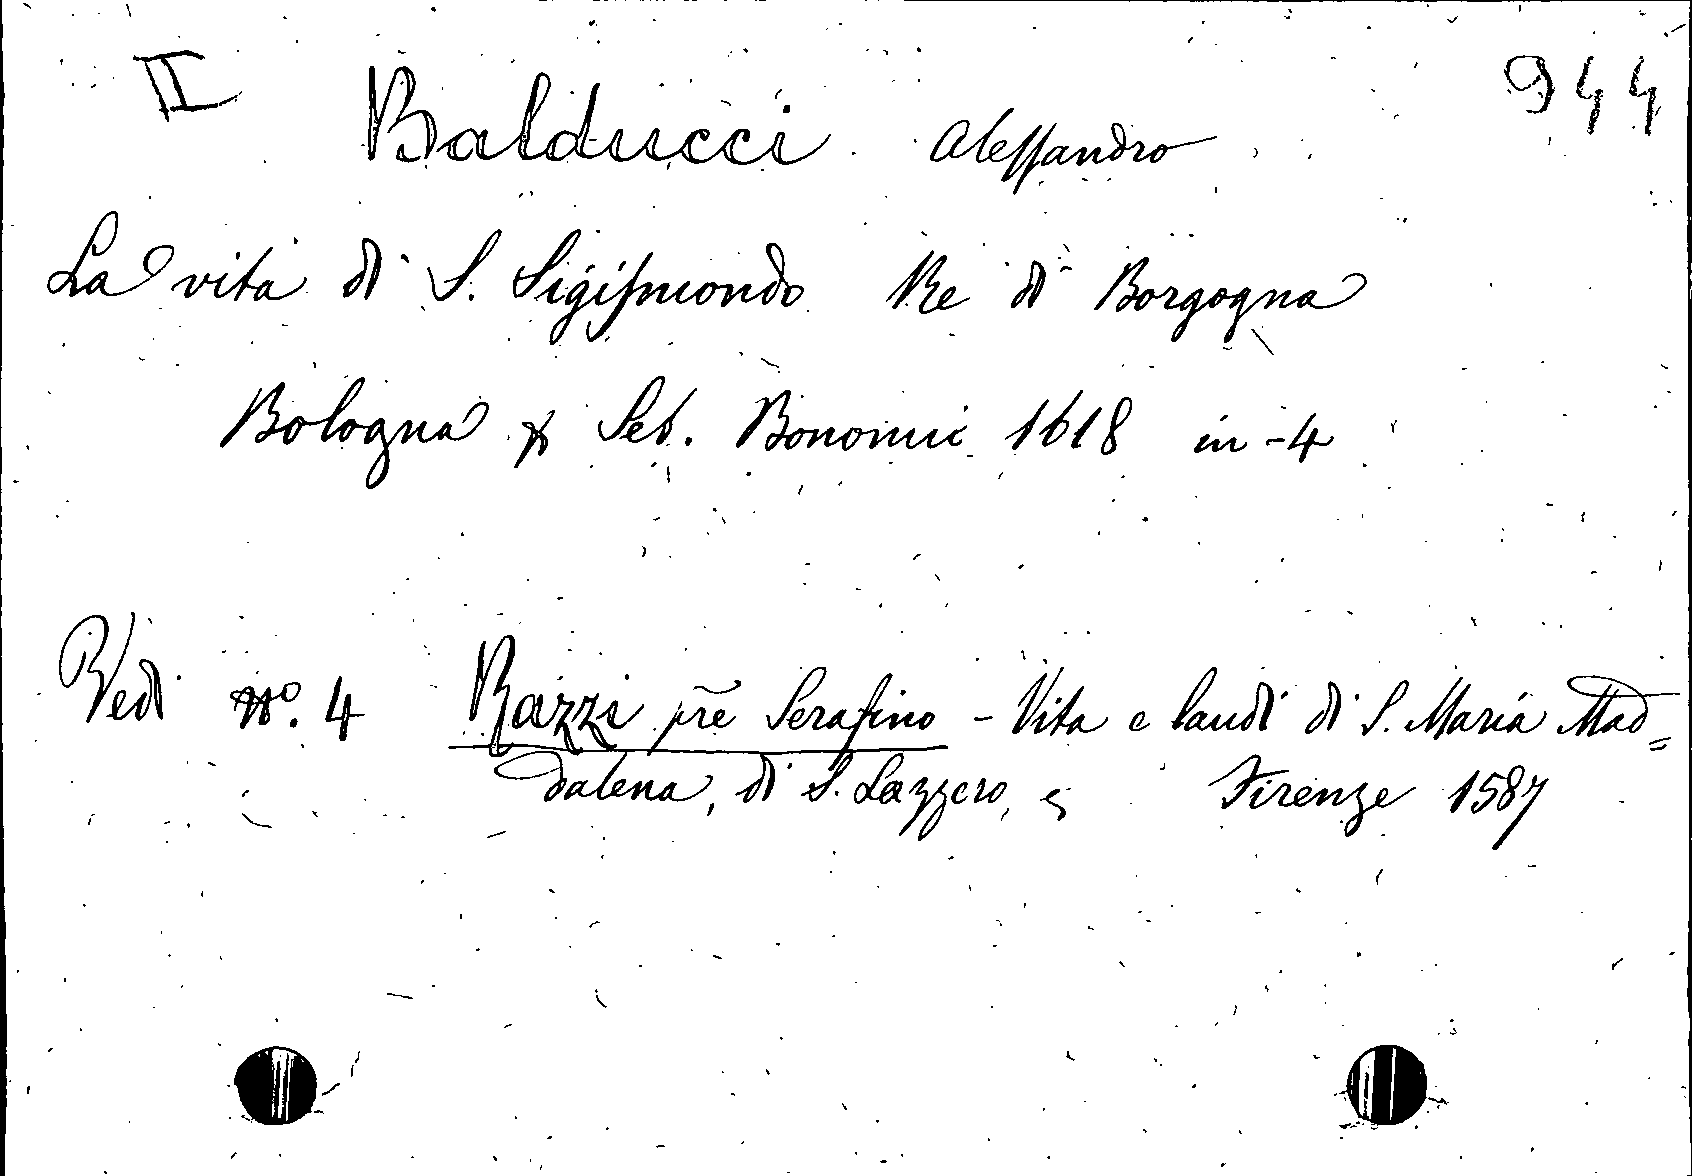 II Balducci Alessandro 944
La vita di S. Sigismondo Re di Borgogna
Bologna x Seb. Bonomii 1618 in-4
Vedi no. 4 Razzi pr̃e Serafino - Vita e laudi di S. Maria Mad=
dalena, di S. Lazzero, Firenze 1587